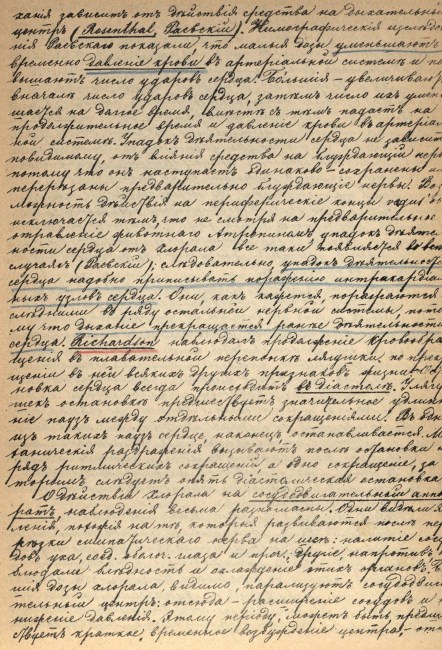 ханія зависитъ отъ дѣйствія средства на дыхательный
центръ (Rosenthal, Раевскій). Кимографическія изслѣдова
нія Раевскаго показали, что малыя дозы уменьшаютъ
временно давленіе крови въ артеріальной системѣ и по
вышаютъ число ударовъ сердца. Большія – увеличиваютъ
вначалѣ число ударовъ сердца, затѣмъ число ихъ умень
шается на долгое время, вмѣстѣ съ тѣмъ падаетъ на
продолжительное время и давленіе крови въ артеріаль
ной системѣ. Упадокъ дѣятельности сердца не зависитъ
повидимому, отъ вліянія средства на блуждающій нервъ
потому что онъ наступаетъ одинаково – сохранены или
перерѣзаны предварительно блуждающіе нервы. Воз
можность дѣйствія на периферическіе концы vagus'овъ
исключается тѣмъ, что не смотря на предварительное
отравленіе животнаго Атропиномъ упадокъ дѣятель
ности сердца отъ хлорала все таки появляется во всѣхъ
случаяхъ (Раевскій); слѣдовательно, упадокъ дѣятельности
сердца надобно приписывать пораженію интракардіаль
ныхъ узловъ сердца. Они, какъ кажется, поражаются
слѣдними въ ряду остальной нервной системы, пото
му что дыханіе прекращается ранѣе дѣятельности
сердца. Richardson наблюдалъ продолженіе кровообра
щенія въ плавательной перепонкѣ лягушки, по прекра
щеніи въ ней всякихъ другихъ признаковъ жизни. Ост
новка сердца всегда происходитъ въ діастолѣ. У лягу
шекъ остановкѣ предшествуетъ значительное удлине
ніе паузъ между отдѣльными сокращеніями. Въ одну
изъ такихъ паузъ сердце, наконецъ останавливается. Ме
ханическія раздраженія вызываютъ послѣ остановки
рядъ ритмическихъ сокращеній, а одно сокращеніе, за
торымъ слѣдуетъ опять діастолическая остановка
О дѣйствіи хлорала на сосудодвигательный аппа
ратъ наблюденія весьма разногласны. Одни видѣли яв
ленія, похожія на тѣ, которыя развиваются послѣ пе
рѣзки симпатическаго нерва на шеѣ: налитіе сосу
довъ уха, соед. оболоч. глаза и проч.; другіе, напротивъ на
блюдали блѣдность и охлажденіе этихъ органовъ. Боль
шія дозы хлорала, видимо, парализуютъ сосудодвига
тельный центръ: отсюда – расширеніе сосудовъ и по
ниженіе давленія. Этому періоду, можетъ быть, предше
ствуетъ краткое временное возбужденіе центра, – отъ